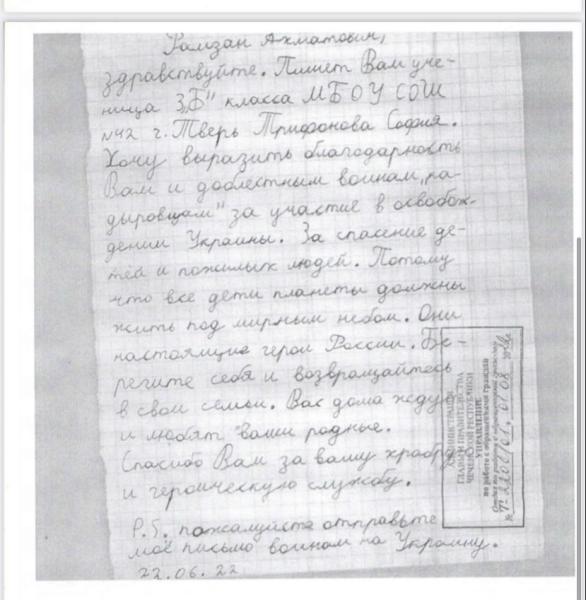 Рамзан Ахматович,
здравствуйте. Пишет Вам уче-
ница 3„Б" класса МБОУ СОШ
№42 г. Тверь Трифонова София.
Хочу выразить благодарность
Вам и доблестным воинам „ка-
дыровцам" за участие в освобож-
дении Украины. За спасение де-
тей и пожилых людей. Потому
что все дети планеты должны
жить под мирным небом. Они
настоящие герои России. Бе-
регите себя и возвращайтесь
в свои семьи. Вас дома ждут
и любят ваши родные.
Спасибо Вам за вашу храбро
и героическую службу.
P.S. пожалуйста отправьте
моё письмо воинам на Украину.
22.06.22
АДМИНИСТРАЦИЯ
ГЛАВЫ И ПРАВИТЕЛЬСТВА
ЧЕЧЕНСКОЙ РЕСПУБЛИКИ
УПРАВЛЕНИЕ
по работе с обращениями граждан